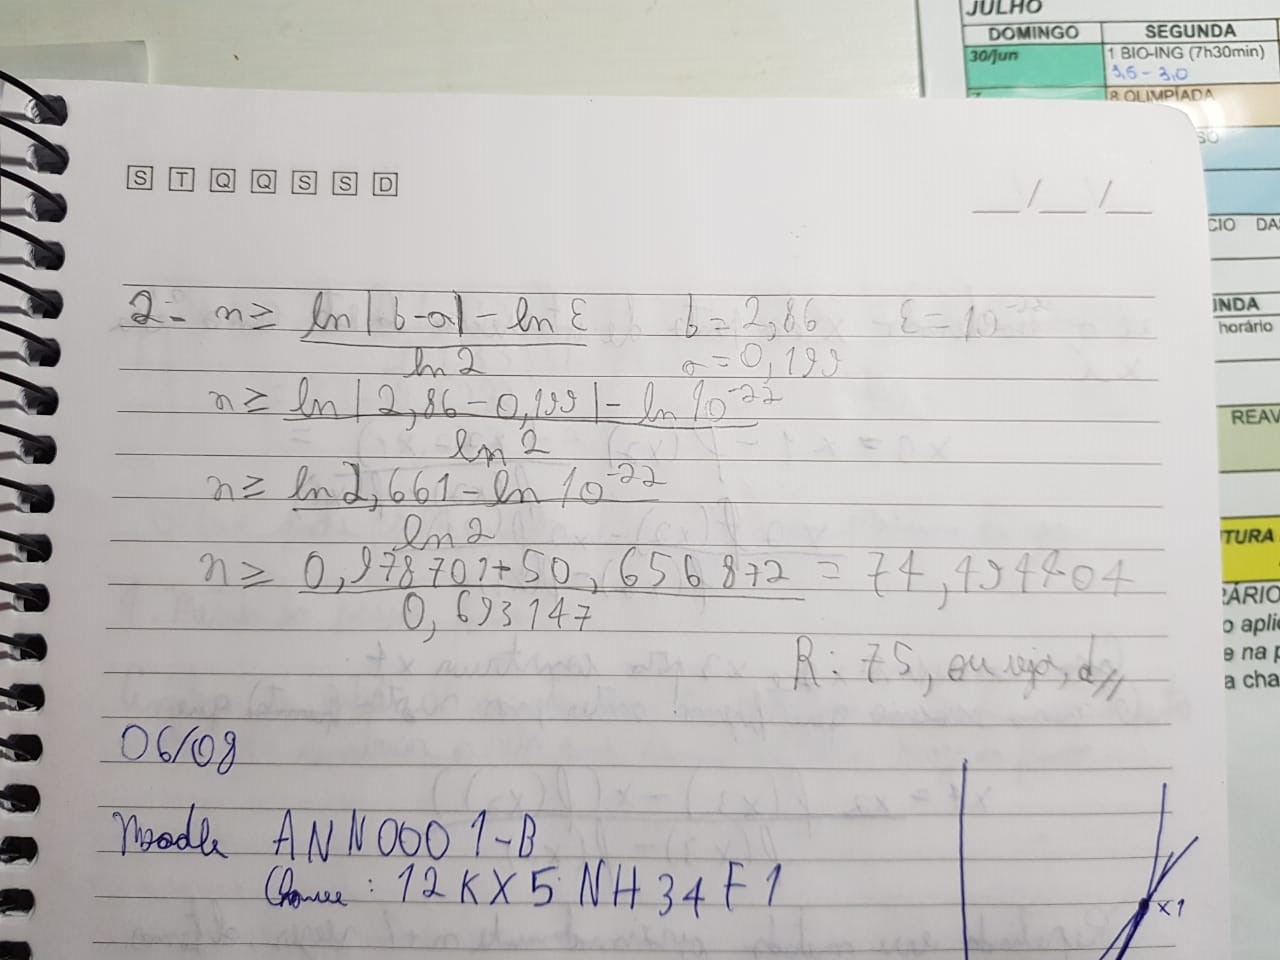 JULHO
DOMINGO SEGUNDA
30/jun 1 BIO-ING (7h30min)
3,5-3,0
8 OLIMPÍADA
SO
CIO DA
UNDA
horário
REAV
TURA
ÁRIO
o aplic
e na p
a cha
S T Q Q S S D
__/__/__
2- n≥ ln|b-a|-lnε b=2,86 ε=10⁻²²
ln2 a=0,199
n≥ ln|2,86-0,199|-ln10⁻²²
ln2
n≥ ln2,661-ln10⁻²²
ln2
n≥ 0,978701+50,656872 = 74,494404
0,693147
R: 75, ou seja, d//
06/08
Moodle ANN0001-B
Chave: 12KX5NH34F1
x1